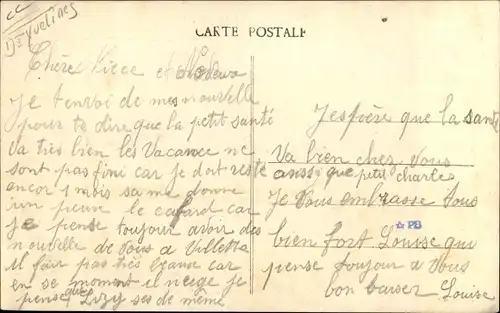 CC
D= Yvelines
CARTE POSTALE
Chère Niece et Neveu
Je t envoi de mes nouvelle
pour te dire que la petit santé
va très bien les Vacance ne
sont pas fini car je doit resté
encor 1 mois sa me donne
un peux le cafard car
je pense toujour avoir des
nouvelle de vous a Villette
il fair pas très beaux car
en se moment il neige je
pense que Lizy ses de même
J espère que la santé
Va bien chez Vous
aussi que petit charles
Je Vous embrasse tous
PB
bien fort Louise qui
pense toujour a Vous
bon baiser Louise